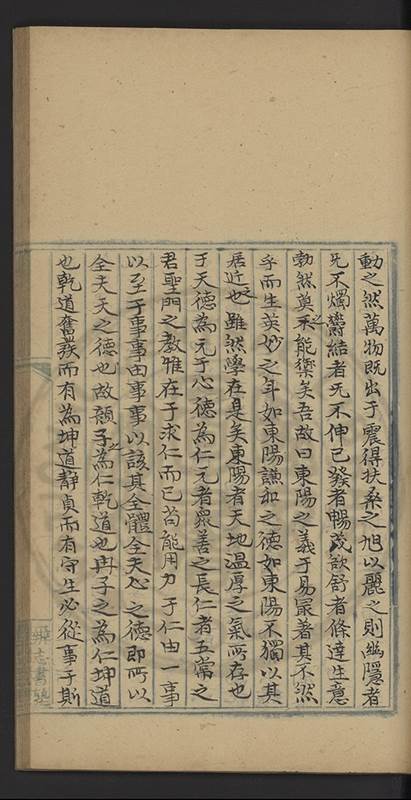 動之然萬物既出于震得扶桑之旭以麗之則幽隱者
无不燭欝結者无不伸已發者暢茂歛舒者條達生意
勃然莫之能禦矣吾故曰東陽之義于易最著其不然
乎而生英妙之年如東陽謙和之德如東陽不獨以其
居近也雖然學在是矣東陽者天地温厚之氣所存也
于天德為元于心德為仁元者衆善之長仁者五常之
君聖門之教惟在于求仁而已苟能用力于仁由一事
以至于事事由事事以該其全體全夫心之德即所以
全夫天之德也故顔子之為仁乾道也冉子之為仁坤道
也乾道奮發而有為坤道靜貞而有守生必從事于斯